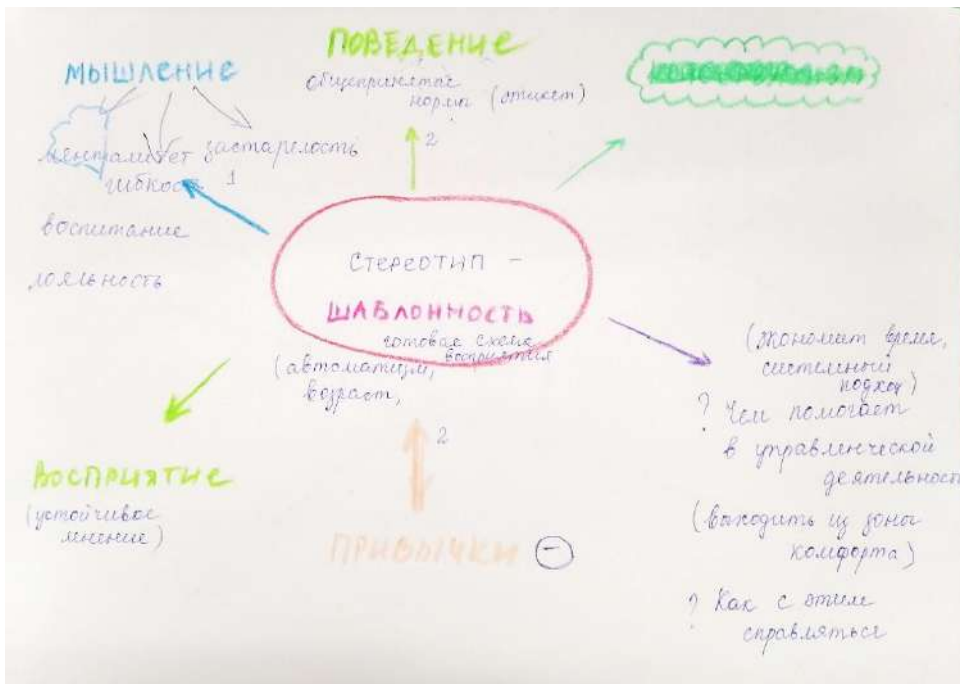 МЫШЛЕНИЕ
менталитет
гибкость
застарелость
1
воспитание
лояльность
ПОВЕДЕНИЕ
общепринятые
нормы (этикет)
2
СТЕРЕОТИП –
ШАБЛОННОСТЬ
готовая схема
восприятия
(автоматизм,
возраст,
ВОСПРИЯТИЕ
(устойчивое
мнение)
2
ПРИВЫЧКИ –
(экономит время,
системный
подход)
? Чем помогает
в управленческой
деятельност
(выходить из зоны
комфорта)
? Как с этим
справляться